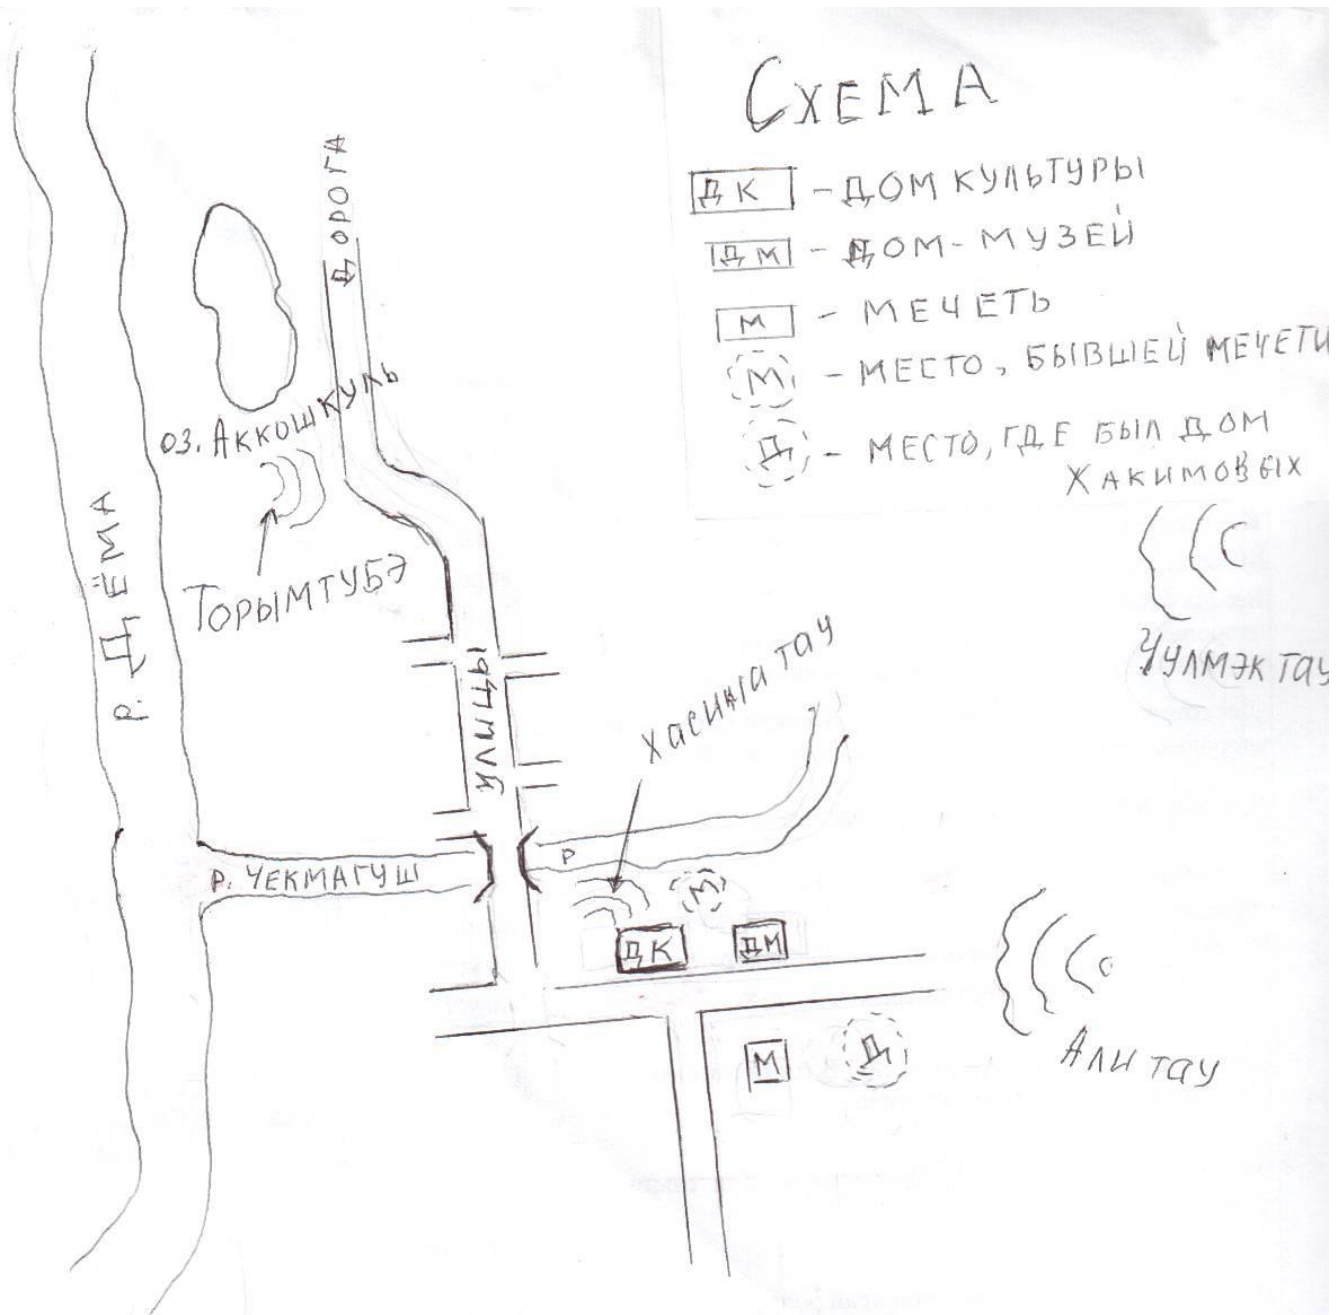 СХЕМА
ДК - ДОМ КУЛЬТУРЫ
ДМ - ДОМ-МУЗЕЙ
М - МЕЧЕТЬ
М - МЕСТО, БЫВШЕЙ МЕЧЕТИ
Д - МЕСТО, ГДЕ БЫЛ ДОМ
ХАКИМОВЫХ
ДОРОГА
ОЗ. АККОШКУЛЬ
ТОРЫМТУБЭ
Р. ДЁМА
УЛИЦЫ
ЧУЛМЭК ТАУ
Р. ЧЕКМАГУШ
Р
М
ДК
ДМ
М
Д
АЛИ ТАУ